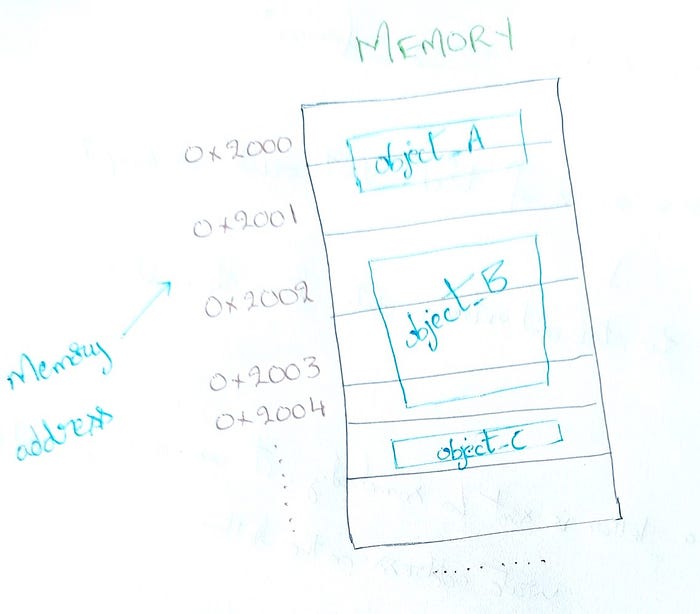 MEMORY
0x2000
object_A
0x2001
0x2002
object_B
0x2003
0x2004
object_C
Memory
address